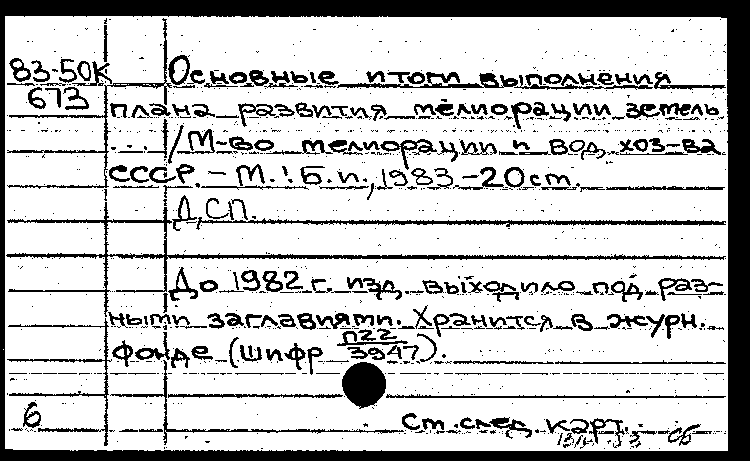 83-50К Основные итоги выполнения
673 плана развития мелиорации земель
... / М-во мелиорации и вод. хоз-ва
СССР. - М.: Б.и., 1983 - 20 см.
ДСП.
До 1982 г. изд. выходило под раз-
ными заглавиями. Хранится в журн.
фонде (шифр П22/3947).
6 См. след. карт.
сб